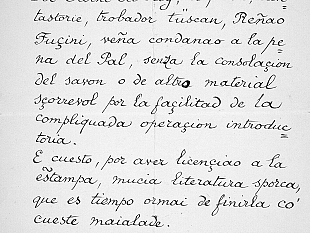 tastorie, trobador tüscan, Reñao
Fuçini, veña condanao a la pe-
na del Pal, senza la consolaçion
del savon o de altro material
sçorrevol por la façilitad de la
compliquada operaçion introduc-
toria.
E cuesto, por aver licençiao a la
estampa, mucia literatura sporca,
que es tiempo ormai de finirla co'
cueste maialade.